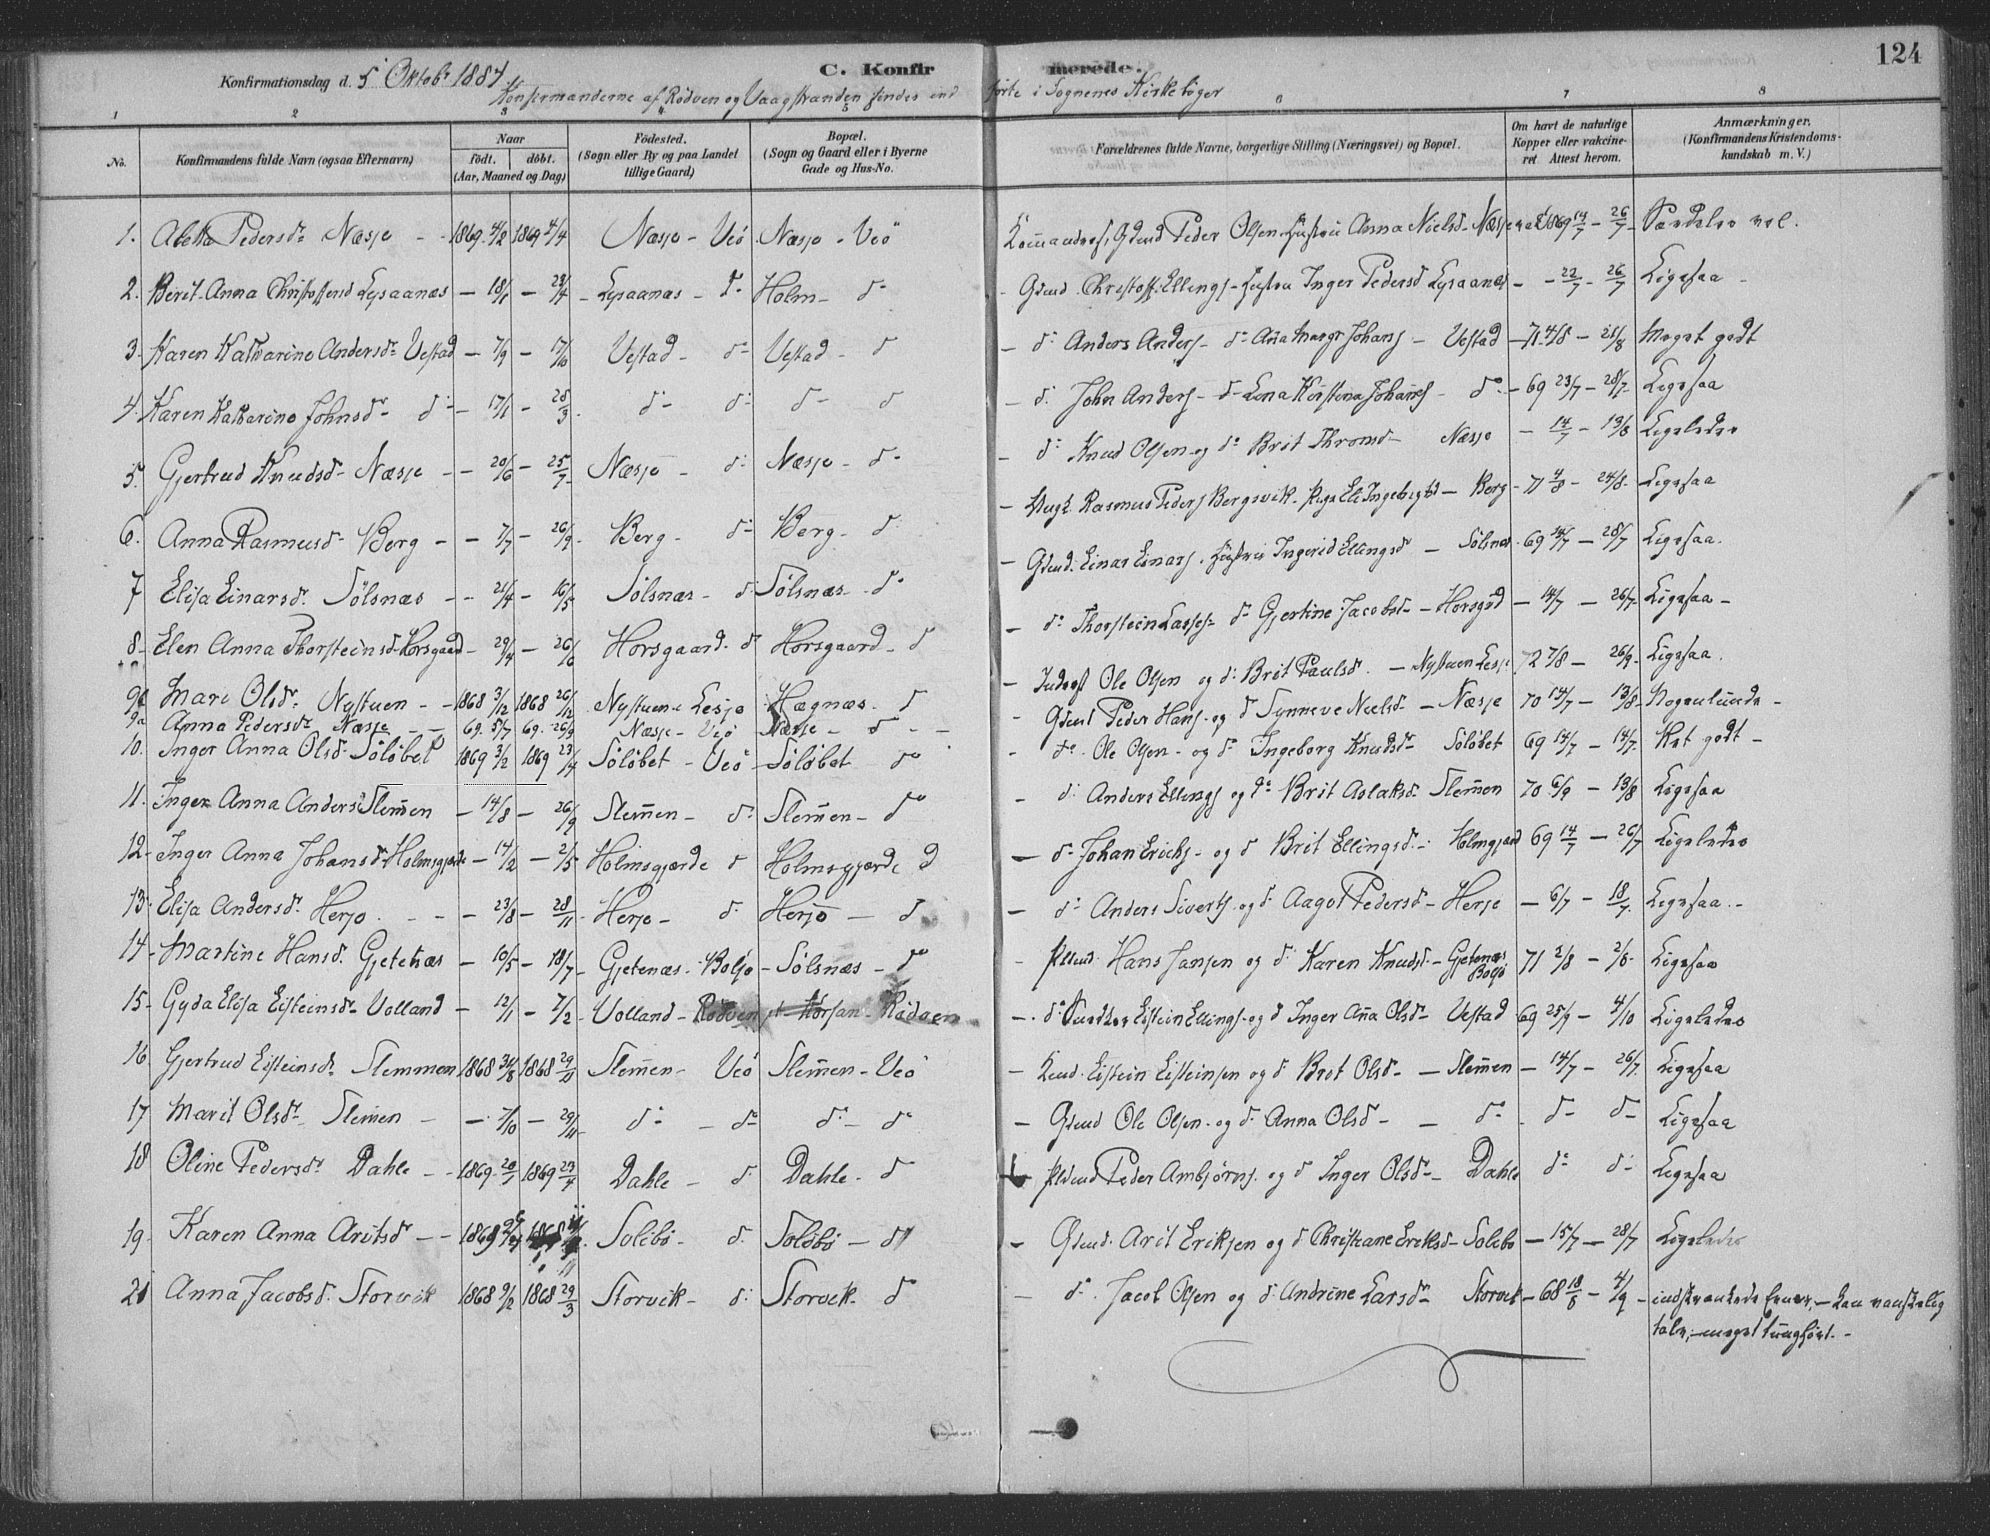 124
Konfirmationsdag d. 5 Oktobr 1884
C. Konfirmerede.
Konfirmanderne af Rødven og Vaagstranden findes indførte i Sognenes Kirkebøger
1 2 3 4 5 6 7 8
No. Konfirmandens fulde Navn (ogsaa Efternavn) Naar født. døbt. (Aar, Maaned og Dag) Fødested. (Sogn eller By og paa Landet tillige Gaard) Bopæl. (Sogn og Gaard eller i Byerne Gade og Hus-No. Forældrenes fulde Navne, borgerlige Stilling (Næringsvei) og Bopæl. Om havt de naturlige Kopper eller vakcineret. Attest herom. Anmærkninger. (Konfirmandens Kristendomskundskab m. V.)
1. Aletta Pedersdr Næsje - - 1869 4/2 1869 4/4 Næsje - Veö Næsje - Veö Gdmd Peder Olsen Hustru Anna Nielsd. Næsje 1869 14/7 - 26/7 Særdeles vel.
2. Berit Anna Christoffersd Lysaanæs - 18/1 - 28/4 - Lysaanæs - do Holm - do - Gdmd. Christoff. Ellings. Hustru Inger Pedersd Lysaanæs - - 22/7 - 26/7 Ligesaa -
3. Karen Katharine Andersdr Vestad - 7/9 - 17/10 Vestad - do Vestad - do - do Anders Anders. do Ana Margr Johans - Vestad - 71 4/8 - 21/8 Meget godt
4. Karen Katharine Johnsdr do - 17/1 - 28/3 do - do do - do - do John Anders. - do Lena Kirstina Johans - do - 69 23/7 - 28/7 Ligesaa
5. Gjertrud Knudsd - Næsje - - 20/6 - 25/7 Næsje - do Næsje - do - do Knud Olsen og do Brit Thronsd - Næsje - 14/7 - 13/8 Ligeledes
6. Anna Rasmusd - Berg - - 7/7 - 26/9 - Berg - do Berg - do - Ungk. Rasmus Peders Bergsvik. Pige Eli Ingebrigtsd - Berg - 71 4/8 - 24/8 Ligesaa
7 Elisa Einarsdr. Sølsnæs - - 21/4 - 16/5 Sølsnæs - do Sølsnæs - do - Gdmd. Einar Einars. Hustru Ingerid Ellingsdr - Sølsnæs - 69 14/7 - 28/7 Ligesaa.
8 - Elen Anna Thorsteinsd Horsgaard - 29/4 - 26/6 Horsgaard - do Horsgaard - do - do Thorstein Lasses. do Gjertine Jacobsd - Horsgrd - 14/7 - 26/7 - Ligesaa -
9 Mari Olsdr. Nystuen - - 1868 3/12 1868 26/12 Nystuen - Lesje Hægnæs - do - Inderst Ole Olsen og do Brit Paulsd. - Nystuen Lesje 72 7/8 - 26/9 - Ligesaa.
9a Anna Pedersdr Næsje - - 69 5/7 69. 26/9 Næsje - Veö Næsje - do - - - Gdmd Peder Hans. og do Synneve Nielsd - Næsje 70 14/7 - 13/8 - Nogenlunde -
10. Inger Anna Olsd. Sòlóbet 1869 3/2 1869 23/4 Sòlóbet - Veö - Sòlóbet - do - do. Ole Olsen - og do Ingeborg Knudsdr - Solòbet 69 14/7 - 14/7. Ret godt -
11. Inger Anna Anders Slemen - 14/8 - 26/9 Slemen - do Slemen - do - do Anders Ellings og do Brit Aslaksdr Slemen 70 6/9 - 13/8 Ligesaa
12 - Inger Anna Johansd Holmsgjerde - 14/2 - 2/5 Holmsgjærde do Holmsgjærde do - do Johan Ericks. og do Brit Ellingsd - Holmgjærd 69 14/7 - 26/7 Ligeledes
13. Elisa Andersdr. Herje. - - 23/8 - 28/11 - Herje - do Herje - do - do Anders Siverts. og do Aagot Pedersd - Herje - 6/7 - 18/7. Ligesaa. -
14 - Martine Hansd. Gjetenæs - 10/5 - 18/7 - Gjetenæs - Bolsø - Sølsnæs - do - Pldmd. Hans Jansen og do Karen Knudsd - Gjetenæs Bolsø 71 2/8 - 2/8 - Ligesaa
15 - Gyda Elisa Eisteinsdr Volland - 12/1 - 7/2 - Volland - Rødven pt Korsan Rødven - do Eistein Ellings - og do Inger Ana Olsdr - Vestad 69 25/9 - 4/10 Ligeledes
16 Gjertrud Eisteinsdr Slemmen 1868 31/8 1868 29/11 Slemen - Veö Slemen - Veö - Eistein Eisteinsen og do Brit Olsd - - Slemen - 14/7 - 26/7. Ligesaa
17 Marit Olsdr. Slemen - - 7/10 - 29/11 do - do do - do - Gdmd Ole Olsen - og do Anna Olsd - - do - do do - Ligesaa
18 Oline Pedersdr Dahle - - 1869 20/1 1869 23/4 Dahle - do Dahle - do Pldmd Peder Ambjørns. og do Inger Olsdr - Dahle do do - Ligesaa
19 - Karen Anna Aritsdr - - 1868 Solebò - do Solòbò - do - Gdmd. Arit Eriksen og do Christiane Eriksd - Solebo - 15/7 - 28/7 Ligeledes
21 Anna Jacobsd. Storvik 1868 9/2 1868 29/3 Storvik - do Storvik - do - do. Jacob Olsen og do Andrine Larsdr - Storvik - 68 18/8 - 4/9 - indskrænkede Evner, - kan vanskelig tale; - meget tunghört. -